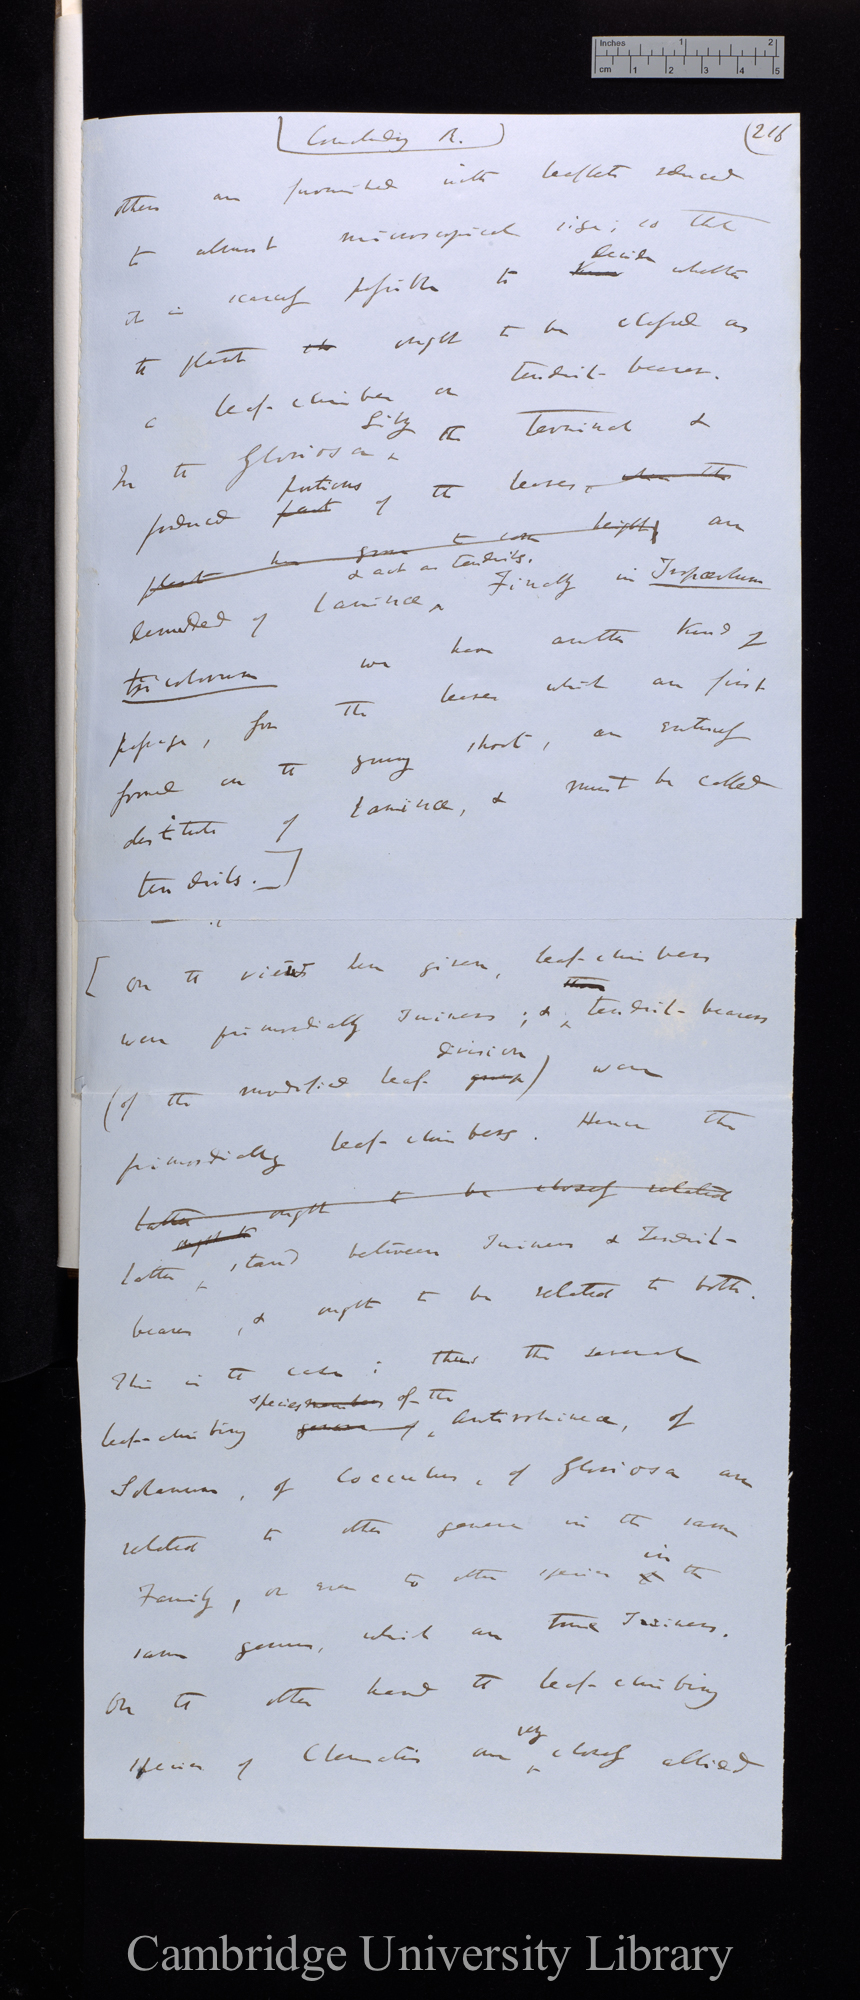 Inches 1 2
cm 1 2 3 4 5
[Concluding R.]
(216
others are furnished with leaflets reduced
to almost microscopical size; so that
it is scarcely possible to know decide whether
the plant ought to be classed as
a leaf-climber or tendril-bearer.
In the Gloriosa Lily the terminal &
produced part portions of the leaves, when the
plant has grown to some height, are
denuded of laminæ & act as tendrils. Finally in Tropæolum
tricolorum we have another kind of
passage, for the leaves which are first
formed on the young shoot, are entirely
destitute of laminæ, & must be called
tendrils.]
[On the views here given, leaf-climbers
were primordially twiners; & tendril-bearers
(of the modified leaf- division) were
primordially leaf-climbers. Hence the
latter ought to be closely related
ought to
latter stand between Twiners & Tendril-
bearers, & ought to be related to both.
This is the case: thus the several
leaf-climbing genera of species members of the Antirrhineæ, of
Solanum, of Cocculus, of Gloriosa are
related to other genera in the same
Family, or even to other species in the
same genus, which are true Twiners.
On the other hand the leaf-climbing
species of Clematis are very closely allied
Cambridge University Library